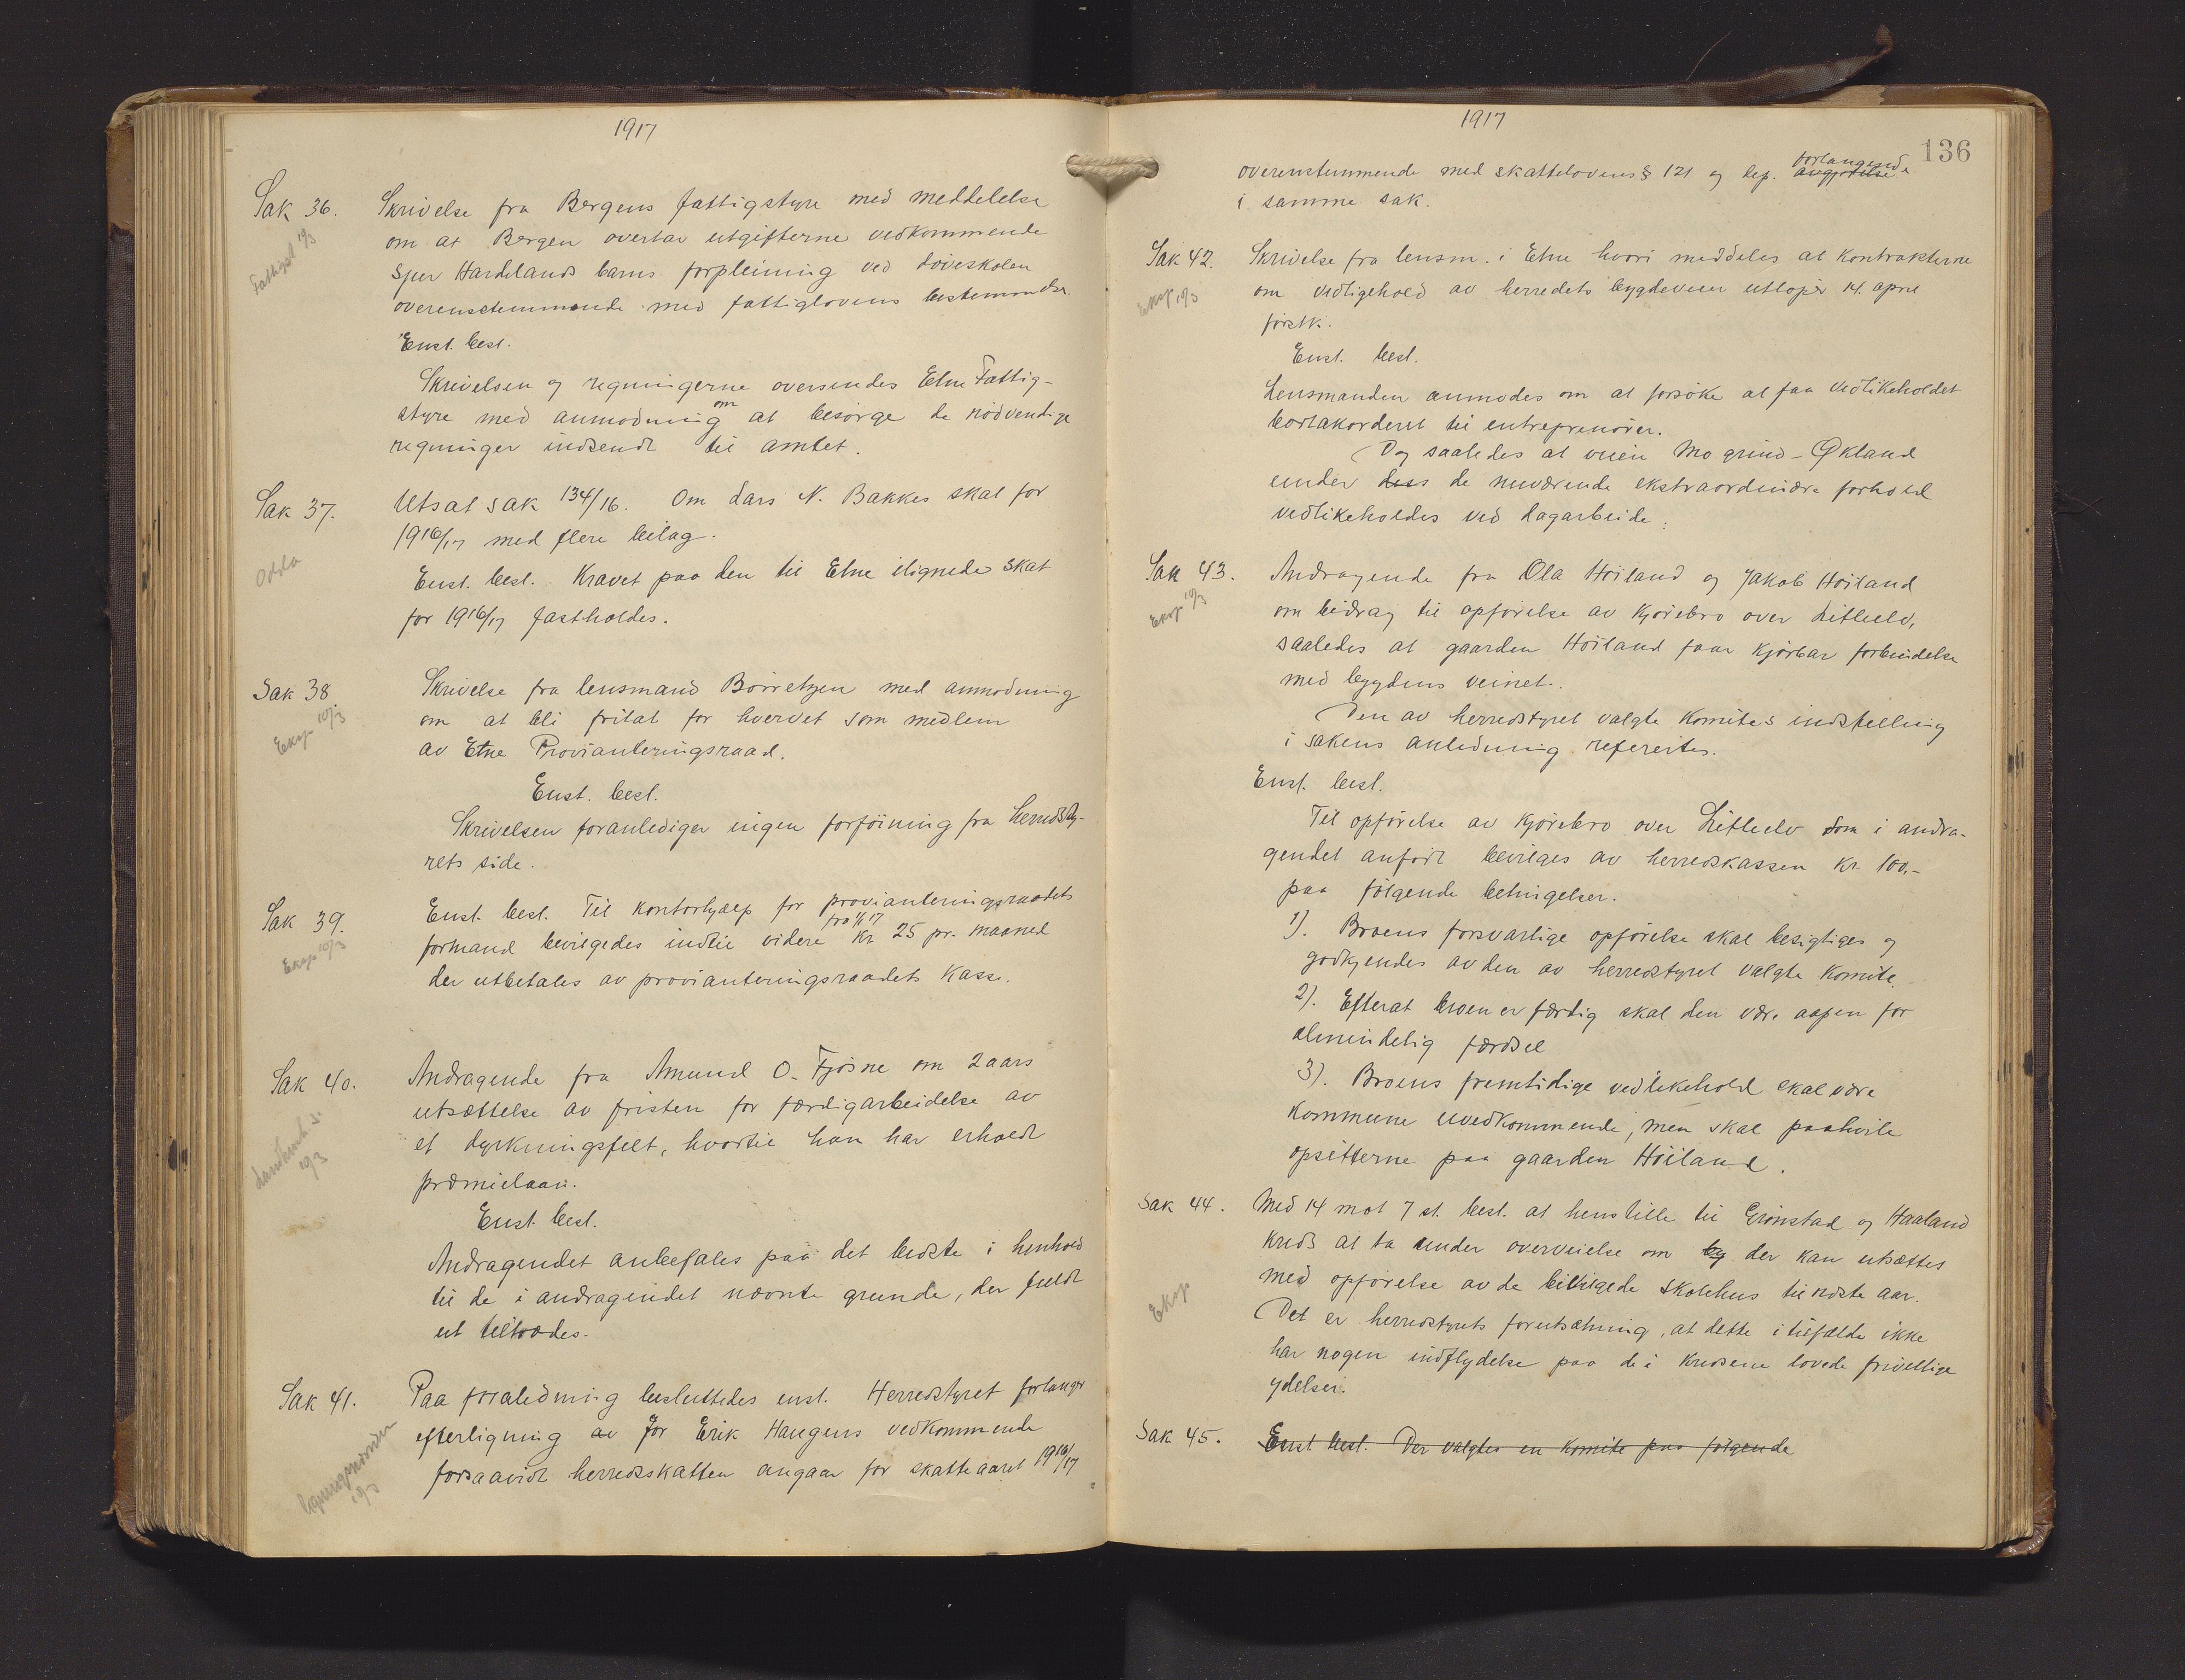 1917
Sak 36. Skrivelse fra Bergens fattigstyre med meddelelse
om at Bergen overtar utgifterne vedkommende
Sjur Hardelands barns forpleining ved døveskolen
overensstemmende med fattiglovens bestemmelser.
Enst. besl.
Skrivelsen og regningerne oversendes Etne Fattig-
styre med anmodning om at besørge de nødvendige
regninger indsendt til amtet.
Fattigst 10/3
Sak 37. Utsat sak 134/16. Om Lars N. Bakkes skat for
1916/17 med flere bilag.
Enst. besl. Kravet paa den til Etne ilignede skat
for 1916/17 fastholdes.
Odda
Sak 38. Skrivelse fra lensmand Børretzen med anmodning
om at bli fritat for hvervet som medlem
av Etne Provianteringsraad.
Enst. besl.
Skrivelsen foranlediger ingen forføining fra herredsty-
rets side.
Eksp 10/3
Sak 39. Enst. besl. Til kontorhjælp for provianteringsraadets
formand bevilgedes indtil videre fra 1/1 17 Kr 25 pr. maaned
der utbetales av provianteringsraadets kasse.
Eksp 10/3
Sak 40. Andragende fra Amund O. Fjøsne om 2 aars
utsættelse av fristen for færdigarbeidelse av
et dyrkningsfelt, hvortil han har erholdt
præmielaan.
Enst. besl.
Andragendet anbefales paa det bedste i henhold
til de i andragendet nævnte grunde, der fuldt
ut tiltrædes.
10/3
Sak 41. Paa foraledning besluttedes enst. Herredstyret forlanger
efterligning av for Erik Haugens vedkommende
forsaavidt herredsskatten angaar for skatteaaret 1916/17
10/3
1917
136
overenstemmende med skattelovens § 121 og dep. avgjørelse forlangende
i samme sak.
Sak 42. Skrivelse fra lensm. i Etne hvori meddeles at kontrakterne
om vedligehold av herredets bygdeveier utløper 14. april
førstk.
Enst. besl.
Lensmanden anmodes om at forsøke at faa vedlikeholdet
bortakorderet til entreprenører.
Og saaledes at veien Mo grind - Økland
under dess de nuværende ekstraordinære forhold
vedlikeholdes ved dagarbeide.
Eksp 10/3
Sak 43. Andragende fra Ola Høiland og Jakob Høiland
om bidrag til opførelse av kjørebro over Litleelv,
saaledes at gaarden Høiland faar kjørbar forbindelse
med bygdens veinet.
Den av herredstyret valgte komites indstelling
i sakens anledning refereites.
Enst. besl.
Til opførelse av kjørebro over Litleelv som i andra-
gendet anført bevilges av herredskassen Kr. 100,-
paa følgende betingelser.
1). Broens forsvarlige opførelse skal besigtiges og
godkjendes av den av herredstyret valgte komite.
2). Efterat broen er færdig skal den være aapen for
almindelig færdsel
3). Broens fremtidige vedlikehold skal være
kommune uvedkommende, men skal paahvile
opsitterne paa gaarden Høiland.
Eksp 10/3
Sak 44. Med 14 mot 7 st. besl. at henstille til Grønstad og Haaland
kreds at ta under overveielse om og der kan utsættes
med opførelse av de bevilgede skolehus til næste aar.
Det er herredstyrets forutsætning, at dette i tilfælde ikke
har nogen indflydelse paa de i kredsene lovede frivillige
ydelser.
Eksp
Sak 45. Enst besl. Der valgtes en komite paa følgende